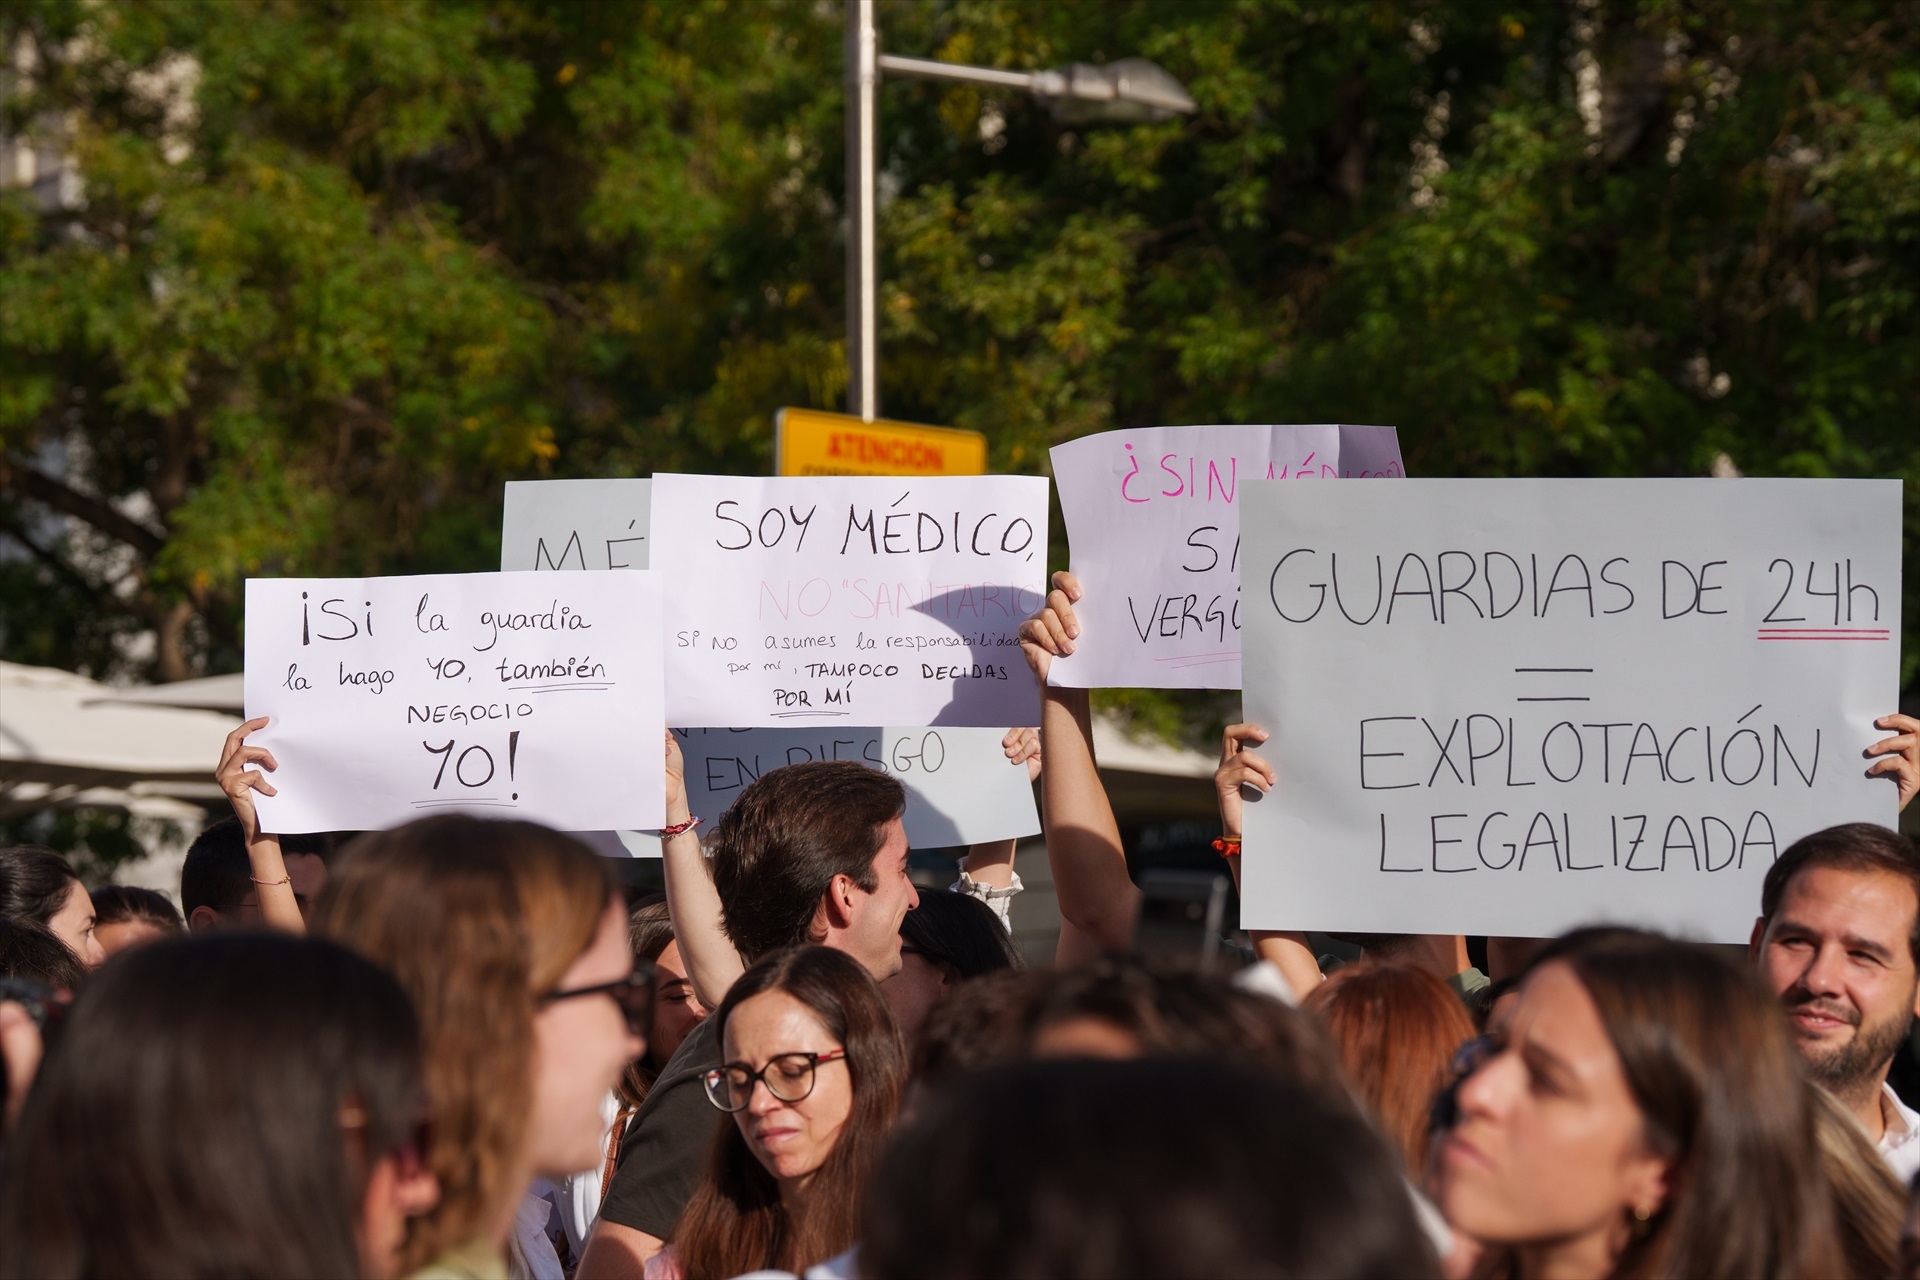 ATENCIÓN
MÉ
¡Si la guardia
la hago YO, también
NEGOCIO
YO!
SOY MÉDICO,
NO "SANITARIO"
Si NO asumes la responsabilidad
por mí, TAMPOCO DECIDAS
POR MÍ
EN RIESGO
¿SIN MÉDICOS?
VERGÜ
GUARDIAS DE 24h
=
EXPLOTACIÓN
LEGALIZADA